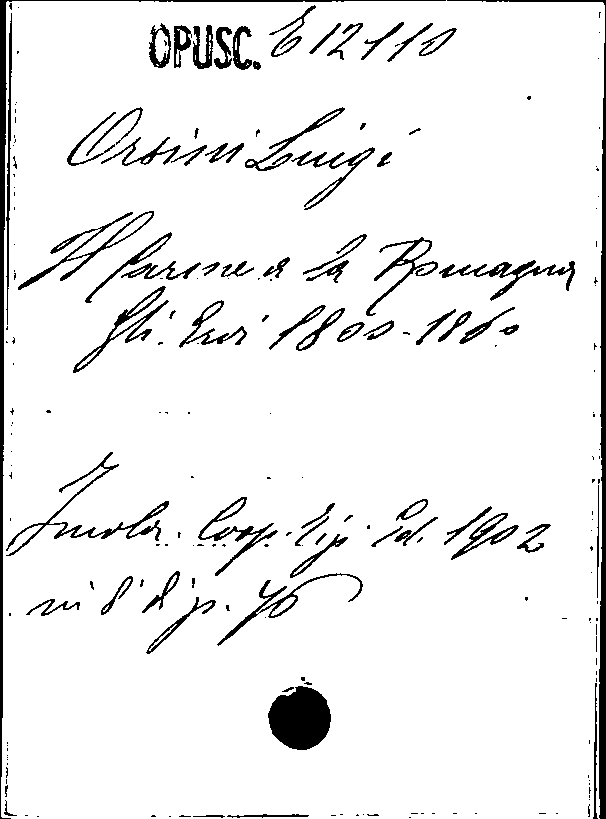 OPUSC. E 12110
Orsini Luigi
Il Carme a la Romagna
Gli Eroi 1800-1860
Imola. Coop. Tip. Ed. 1902
in 8° di p. 76